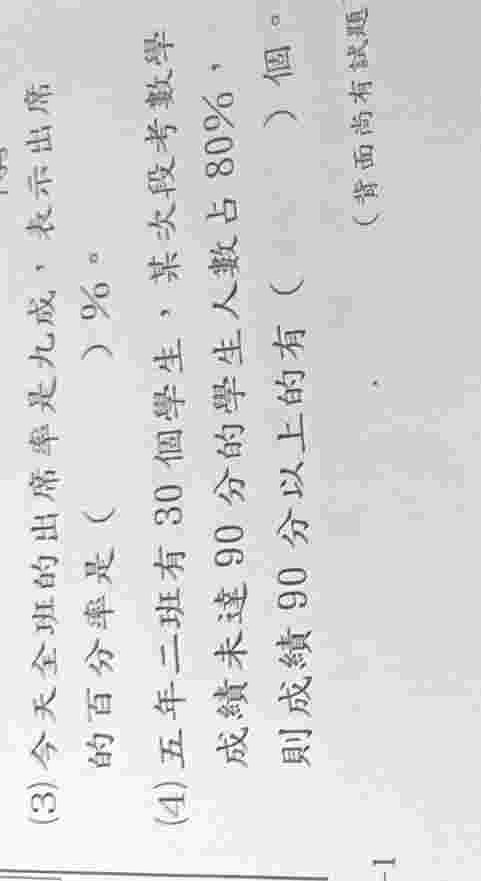 (3) 今天全班的出席率是九成，表示出席
的百分率是（　　　）%。
(4) 五年二班有 30 個學生，某次段考數學
成績未達 90 分的學生人數占 80%，
則成績 90 分以上的有（　　　）個。
（背面尚有試題
-1